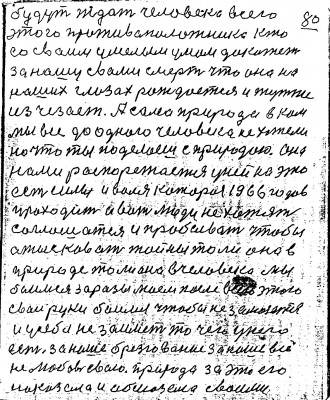 будут ждат человека всего 80
этого противоположника кто
со своим умелым умом докажет
за нашу свами смерт что она на
наших глазах рождается и тут же
изчезает. А сама природа в ком
мы все до одного человека не хотели
но что ты поделаеш с природою. Она
нами распоряжается у ней на это
ест силы и воля которая 1966 годов
проходит а вот люди не хотят
согласится и пробыват чтобы
отыскават тайны то ли она в
природе то ли она в человека мы
боимся заразы моем после этого
сваи руки боимся чтобы не
и у себя не то чего у него
ест. за наше брезгование за нашу всё
не любов сваю. природа за это его
наказала и своими